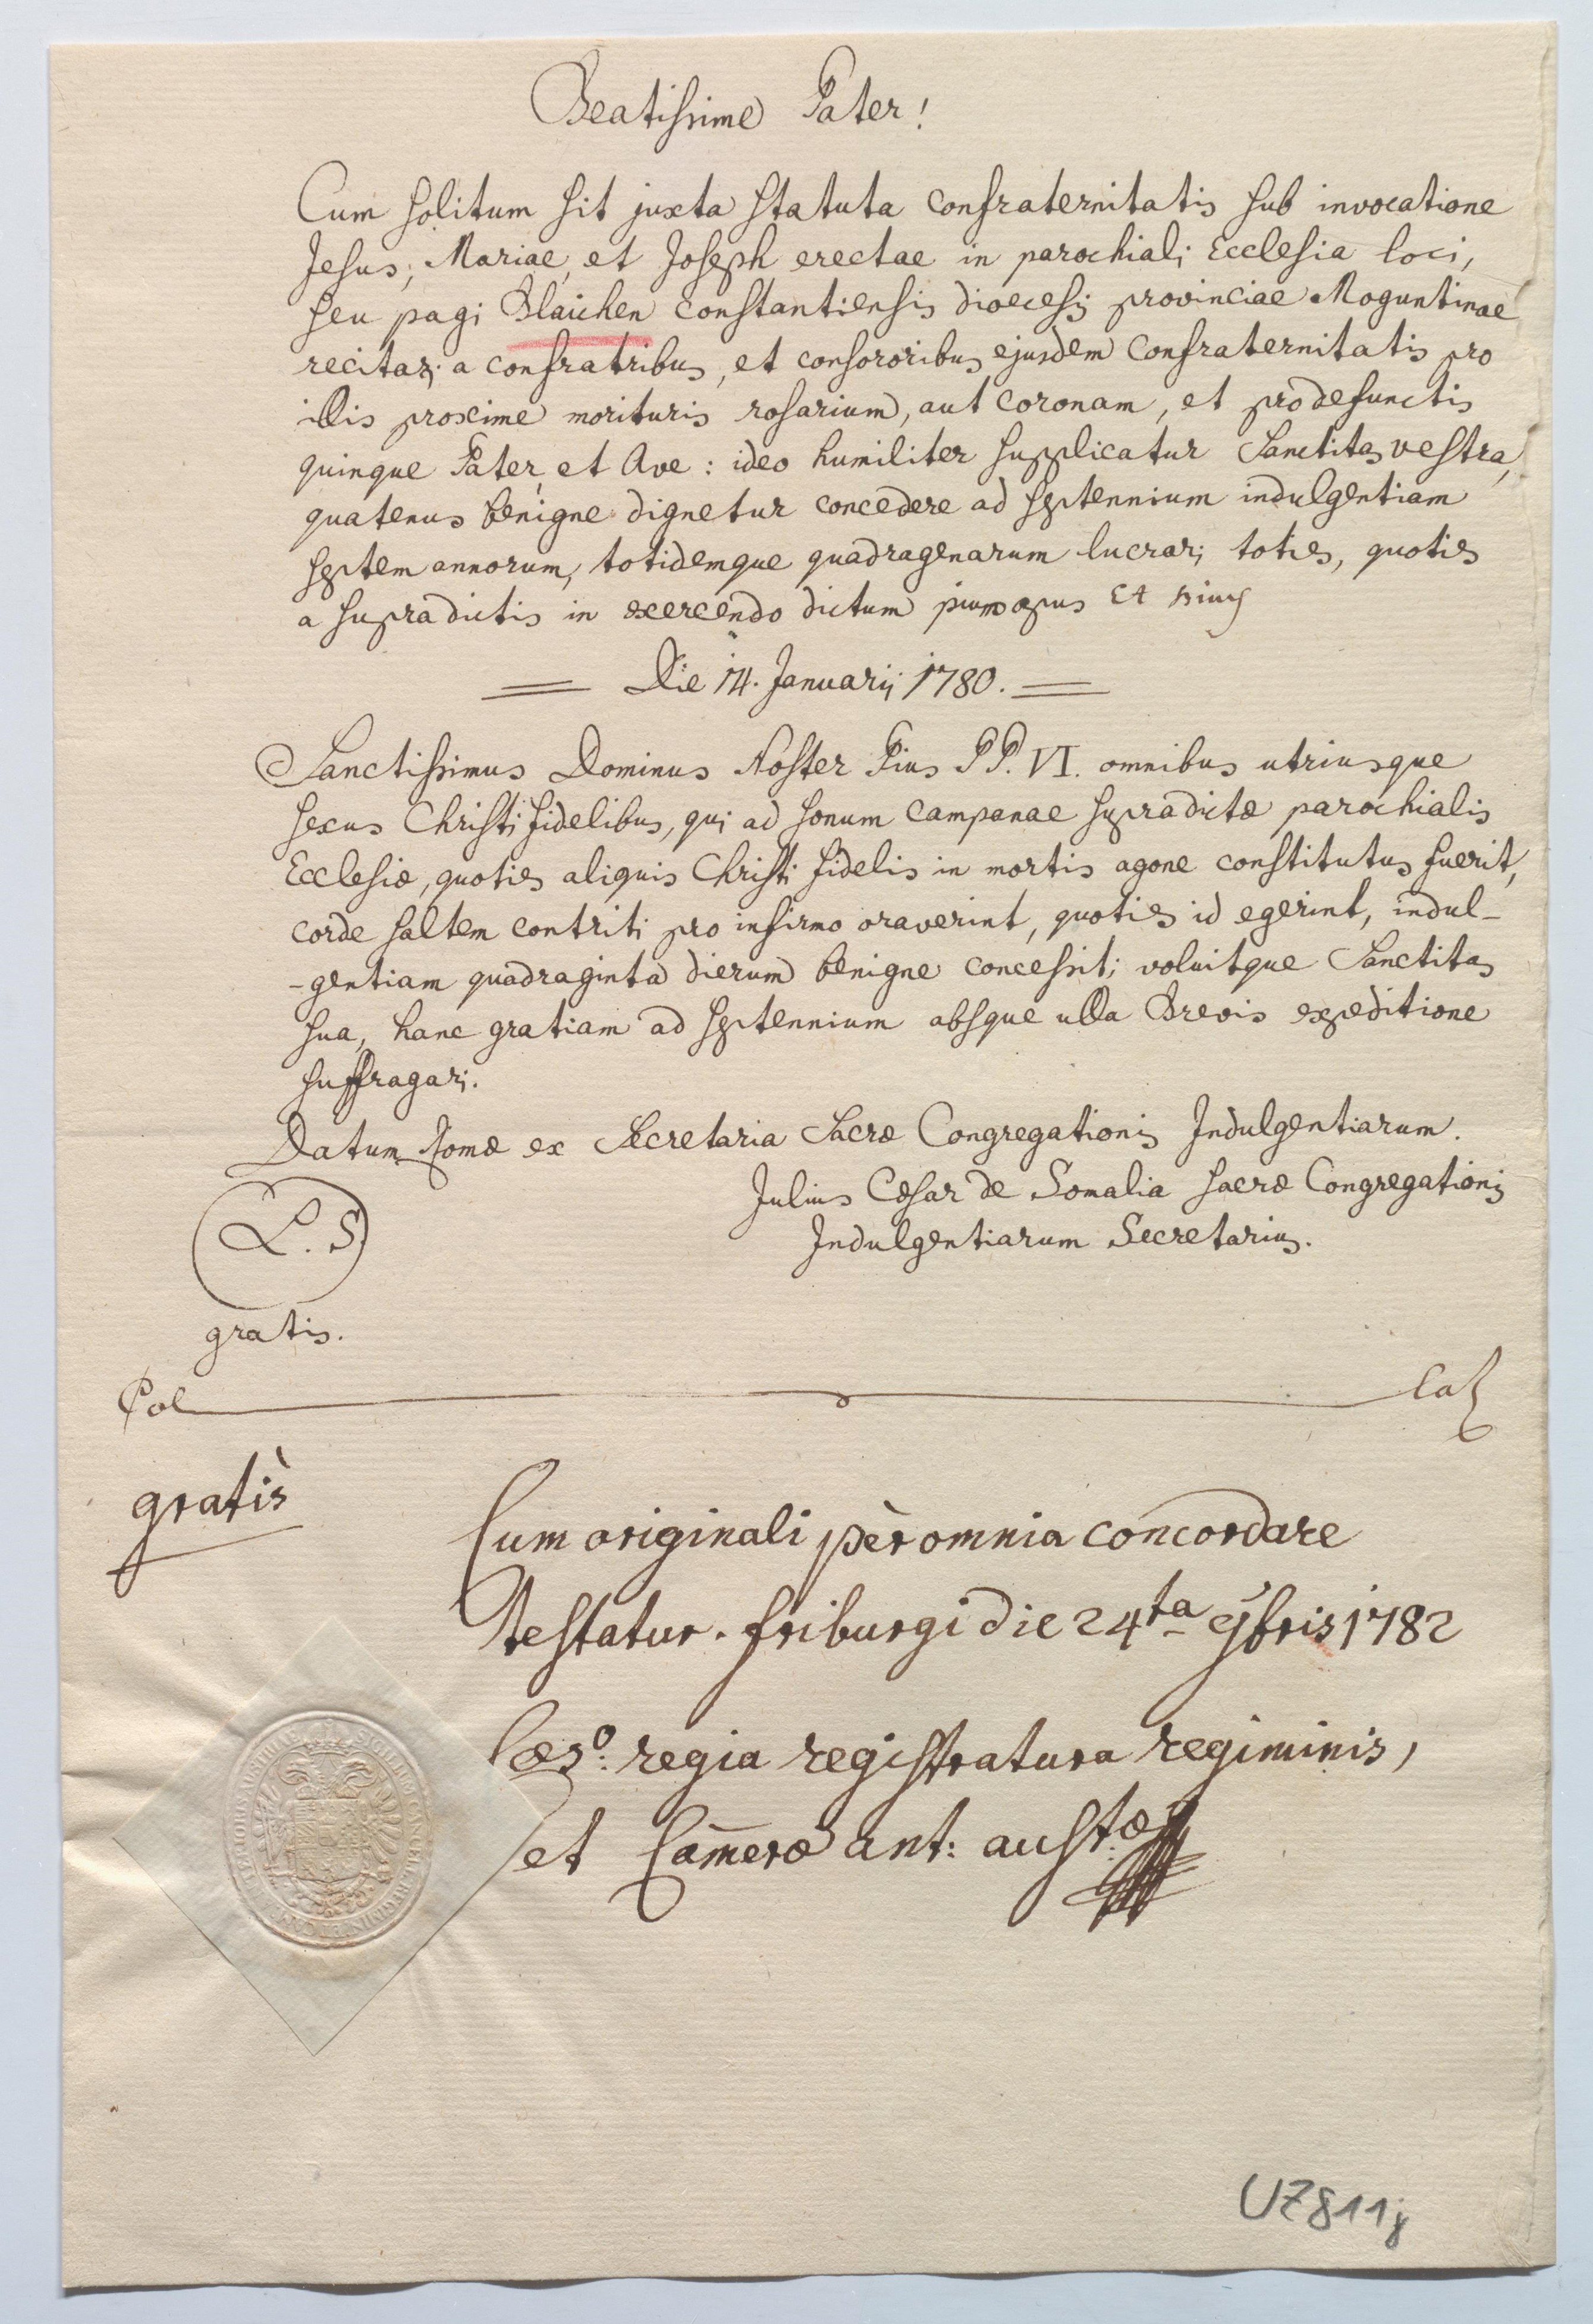 Beatissime Pater!
Cum solitum sit juxta statuta confraternitatis sub invocatione
Jesus, Mariae, et Joseph erectae in parochiali Ecclesia loci,
seu pagi Blaichen Constantiensis dioecesis provinciae Moguntinae
recitari a confratribus, et consororibus ejusdem Confraternitatis pro
illis proxime morituris rosarium, aut coronam, et pro defunctis
quinque Pater, et Ave: ideo humiliter supplicatur Sanctitas vestra,
quatenus benigne dignetur concedere ad septennium indulgentiam
septem annorum, totidemque quadragenarum lucrari toties, quoties
a supradictis in exercendo dictum pium opus et
Die 14. Januarii 1780.
Sanctissimus Dominus Noster Pius PP. VI. omnibus utriusque
sexus Christi fidelibus, qui ad sonum campanae supradictæ parochialis
Ecclesiæ, quoties aliquis Christi fidelis in mortis agone constitutus fuerit,
corde saltem contriti pro infirmo oraverint, quoties id egerint, indul-
-gentiam quadraginta dierum benigne concessit; voluitque Sanctitas
sua, hanc gratiam ad septennium absque ulla Brevis expeditione
suffragari.
Datum Romæ ex Secretaria Sacræ Congregationis Indulgentiarum.
Julius Cæsar de Somalia sacræ Congregationis
Indulgentiarum Secretarius.
L. S.
gratis.
gratis
Cum originali per omnia concordare
testatur. friburgi die 24ta 9bris 1782
Cæso: regia registratura regiminis,
et Cameræ ant: austæ
UZ811j